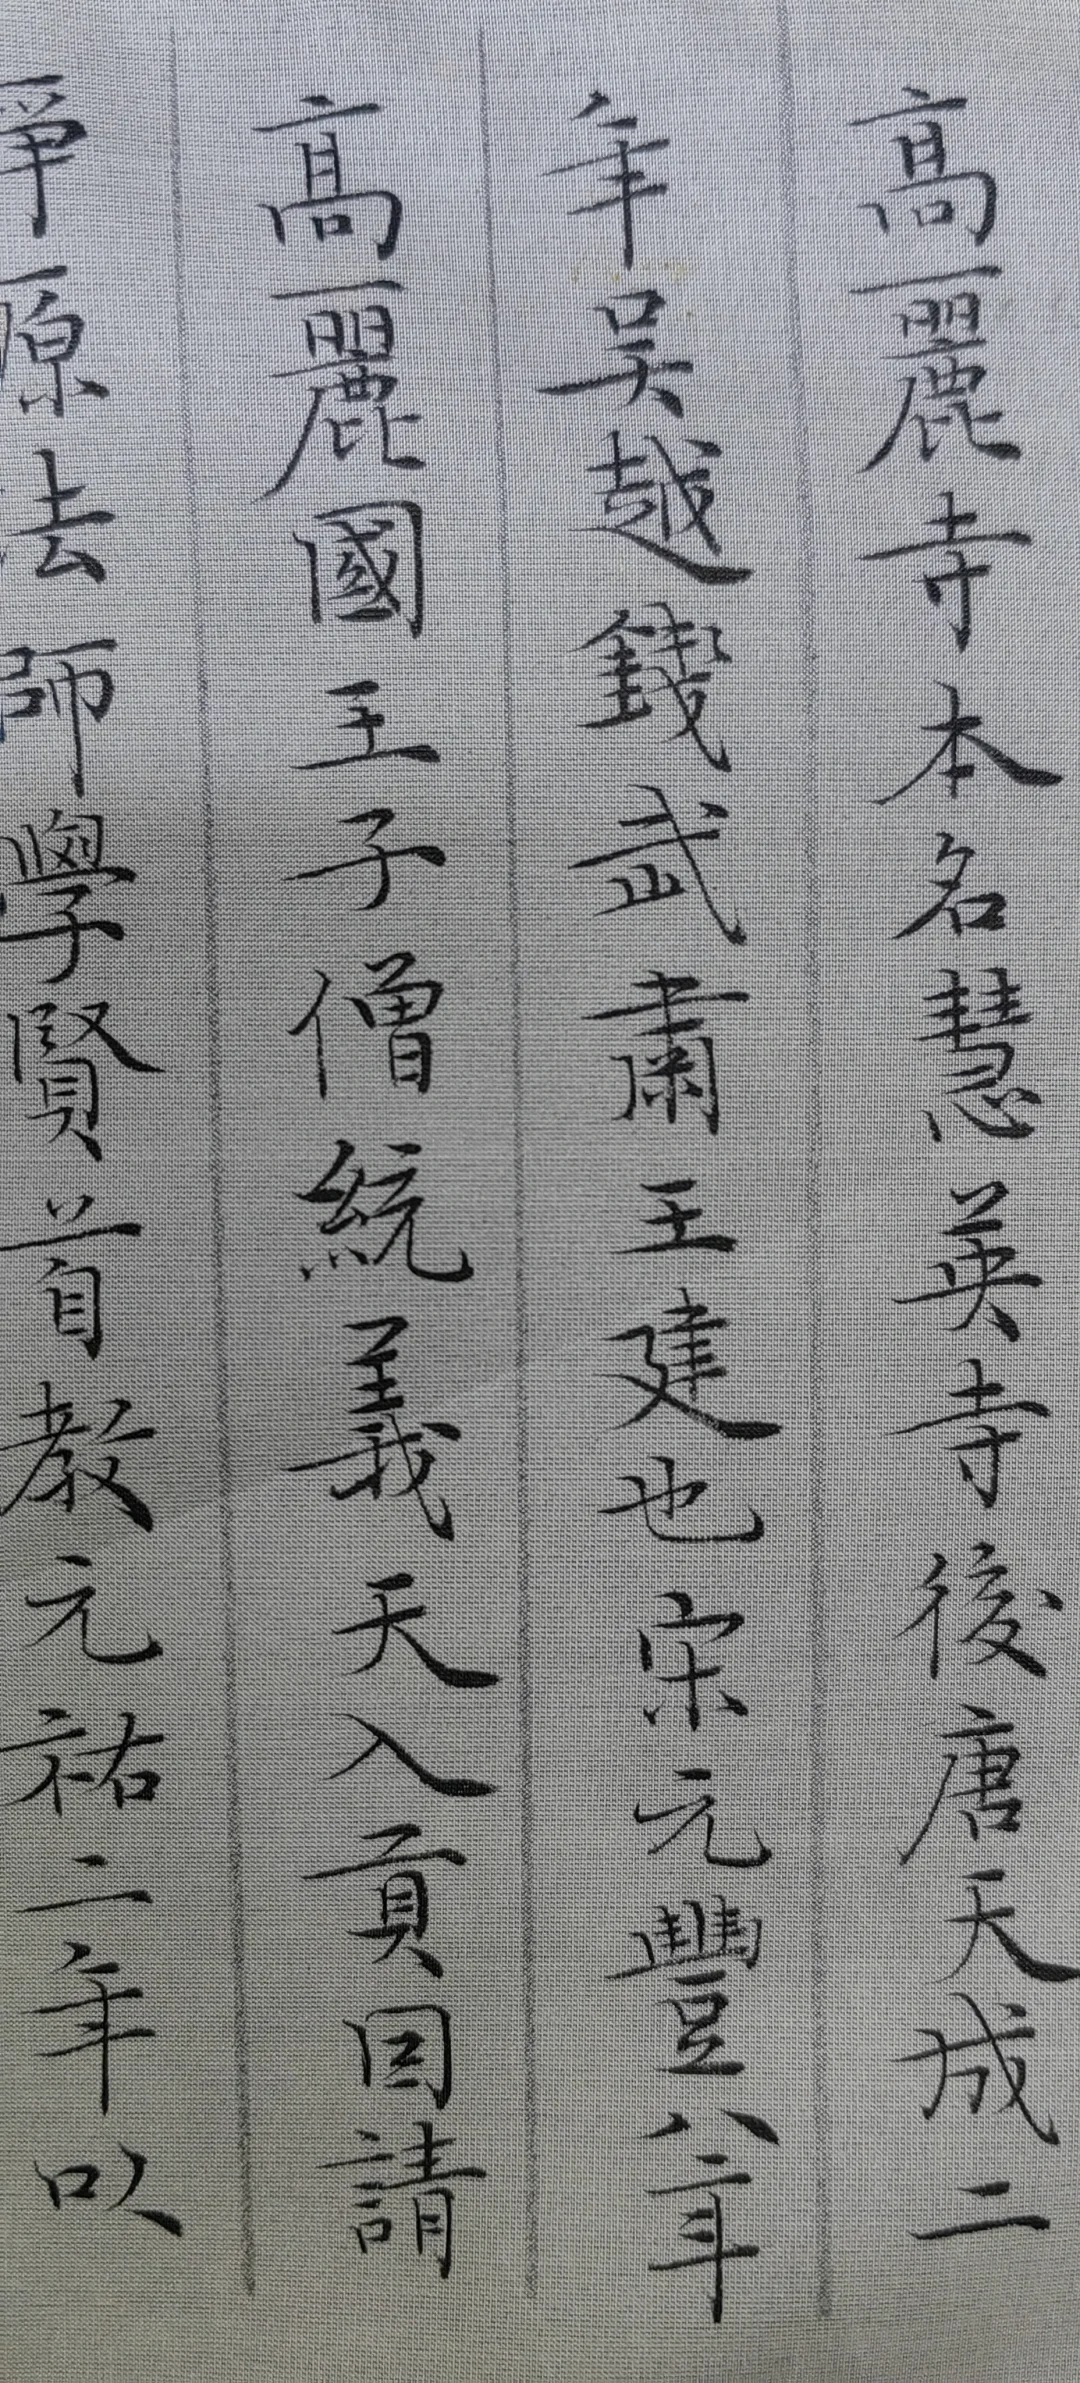 高麗寺本名慧英寺後唐天成二
年吳越錢武肅王建也宋元豐八年
高麗國王子僧統義天入貢因請
淨源法師學賢首教元祐二年以